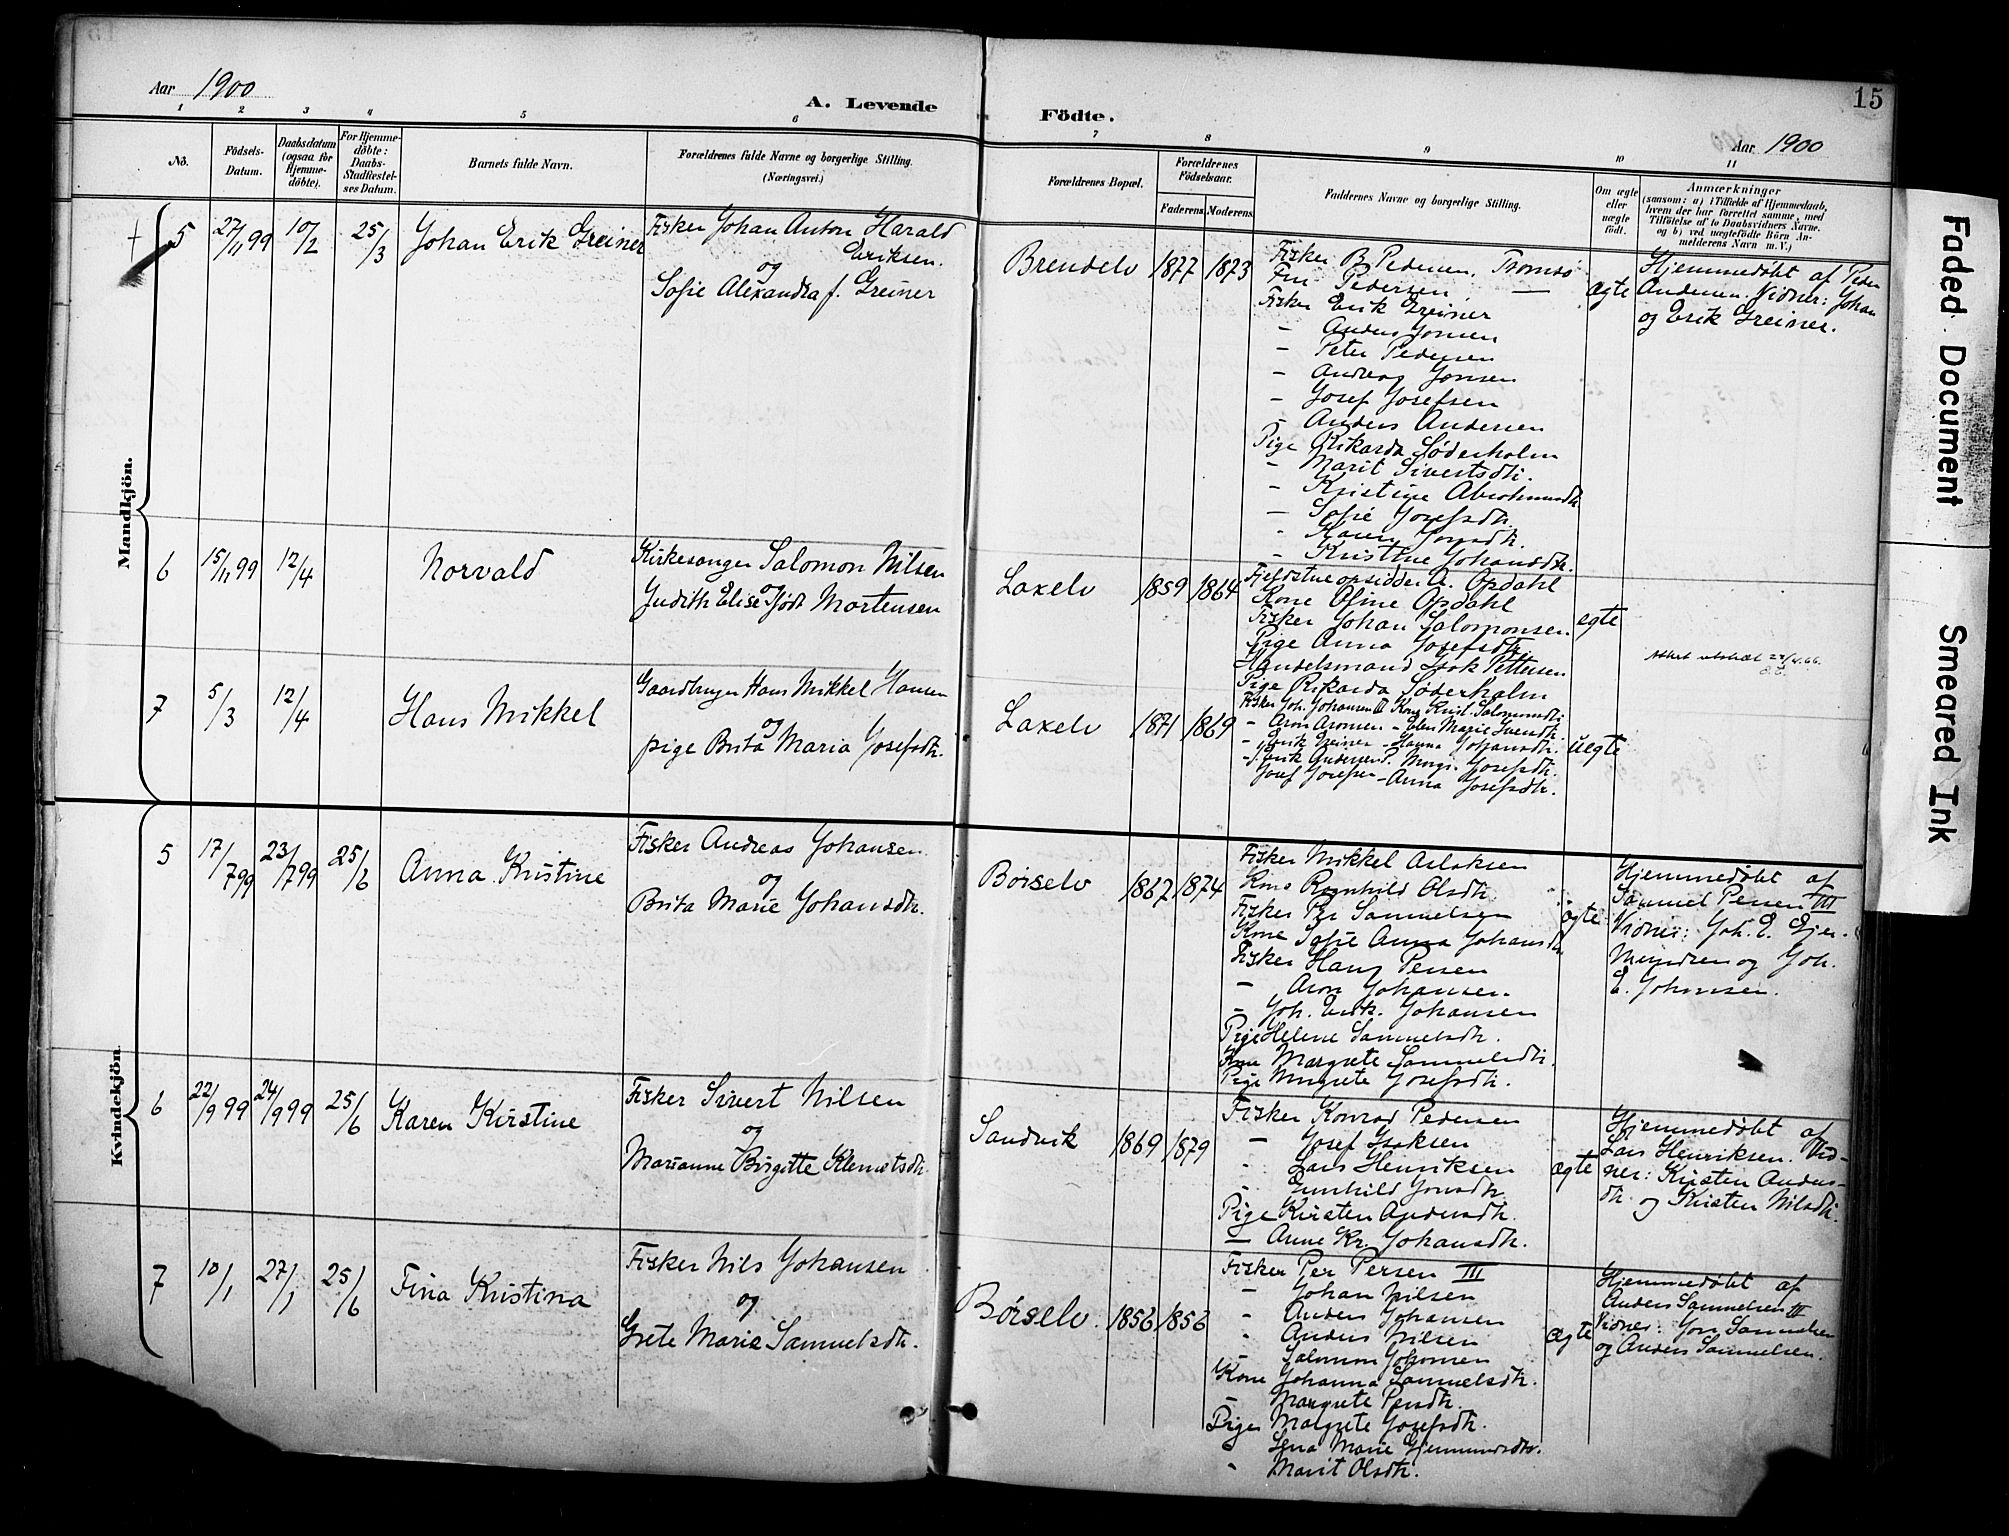 Aar 1900
A. Levende Födte.
15
Aar 1900
1 2 3 4 5 6 7 8 9 10 11
No.
Födsels-Datum.
Daabsdatum (ogsaa for Hjemmedöbte).
For Hjemmedöbte: Daabs-Stadfæstelses Datum.
Barnets fulde Navn.
Forældrenes fulde Navne og borgerlige Stilling.
(Næringsvei.)
Forældrenes Bopæl.
Forældrenes Födselsaar.
Faderens. Moderens.
Faddernes Navne og borgerlige Stilling.
Om ægte eller uægte födt.
Anmærkninger
(saasom: a) i Tilfælde af Hjemmedaab,
hvem der har forrettet samme, med
Tilföielse af to Daabsvidners Navne.
og b) ved uægtefödte Börn An-
melderens Navn m. V.)
Mandkjön.
5 27/11 99 10/2 25/3 Johan Erik Greiner
Fisker Johan Anton Harald
Eriksen
og
Sofie Alexandra f. Greiner
Brendelv 1877 1873
Fisker B. Pedersen, Tromsø
Fru Pedersen —
Fisker Erik Greiner
- Anders Jonsen
- Peter Pedersen
- Andreas Jonsen
- Josef Josefsen
- Anders Andersen
Pige Rikarda Søderholm
- Marit Sivertsdtr.
- Kristine Abrahamsdtr
- Sofie Josefsdtr.
- Karen Jonsdtr.
- Kristine Johansdtr.
ægte
Hjemmedøbt af Peder
Andersen. Vidner: Johan
og Erik Greiner.
6 15/11 99 12/4 Norvald
Kirkesanger Salomon Nilsen
og
Judith Elise født Mortensen
Laxelv 1859 1864
Fjeldstueopsidder A. Opdahl
Kone Ofine Opdahl
Fisker Johan Salomonsen
Pige Anna Josefsdtr.
Handelsmand Isak Pettersen
Pige Rikarda Søderholm
ægte
Attest utstedt
7 5/3 12/4 Hans Mikkel
Gaardbruger Hans Mikkel Hansen
og
pige Brita Maria Josefsdtr.
Laxelv 1871 1869
Fisker Joh. Johansen II Kone Krist. Salomonsdtr
- Aron Aronsen - Ellen Marie Svendsdtr
- Erik Greiner - Hanna Johansdtr.
- Erik Andersen P. Margr. Josefsdtr.
Josef Josefsen - Anna Josefsdtr.
uegte
Kvindekjön.
5 17/7 99 23/7 99 25/6 Anna Kristine
Fisker Andreas Johansen
og
Brita Marie Johansdtr.
Børselv 1867 1874
Fisker Mikkel Aslaksen
Kone Ragnhild Olsdtr.
Fisker Per Samuelsen
Kone Sofie Anna Johansdtr
Fisker Hans Persen
- Aron Johansen
- Joh. Erik Johansen
Pige Helene Samuelsdtr.
Kone Margrete Samuelsdtr.
Pige Margrete Josefsdtr.
ægte
Hjemmedøbt af
Samuel Persen III
Vidner: Joh. E. Gjer-
mundsen og Joh.
E. Johansen.
6 22/9 99 24/9 99 25/6 Karen Kirstine
Fisker Sivert Nilsen
og
Marianne Birgitte Klemetsdtr.
Sandvik 1869 1879
Fisker Konrad Pedersen
- Josef Isaksen
- Lars Henriksen
- Gunhild Jonsdtr.
Pige Kirsten Andersdtr.
— Anne Kr. Johansdtr.
ægte
Hjemmedøbt af
Lars Henriksen. Vid-
ner: Kirsten Anders-
dtr. og Kirsten Nilsdtr.
7 10/1 27/1 25/6 Fina Kristina
Fisker Nils Johansen
og
Grete Marie Samuelsdtr.
Børselv. 1856 1856
Fisker Per Persen III
- Johan Nilsen
- Anders Johansen
- Anders Nilsen
- Salomon Johansen
Kone Johanna Samuelsdtr.
- Margrete Persdtr.
Pige Margrete Josefsdtr.
- Lena Marie Gjermundsdtr.
- Marit Olsdtr.
ægte
Hjemmedøbt af
Anders Samuelsen III
Vidner: Jon Samuelsen
og Anders Samuelsen.
Faded Document
Smeared Ink